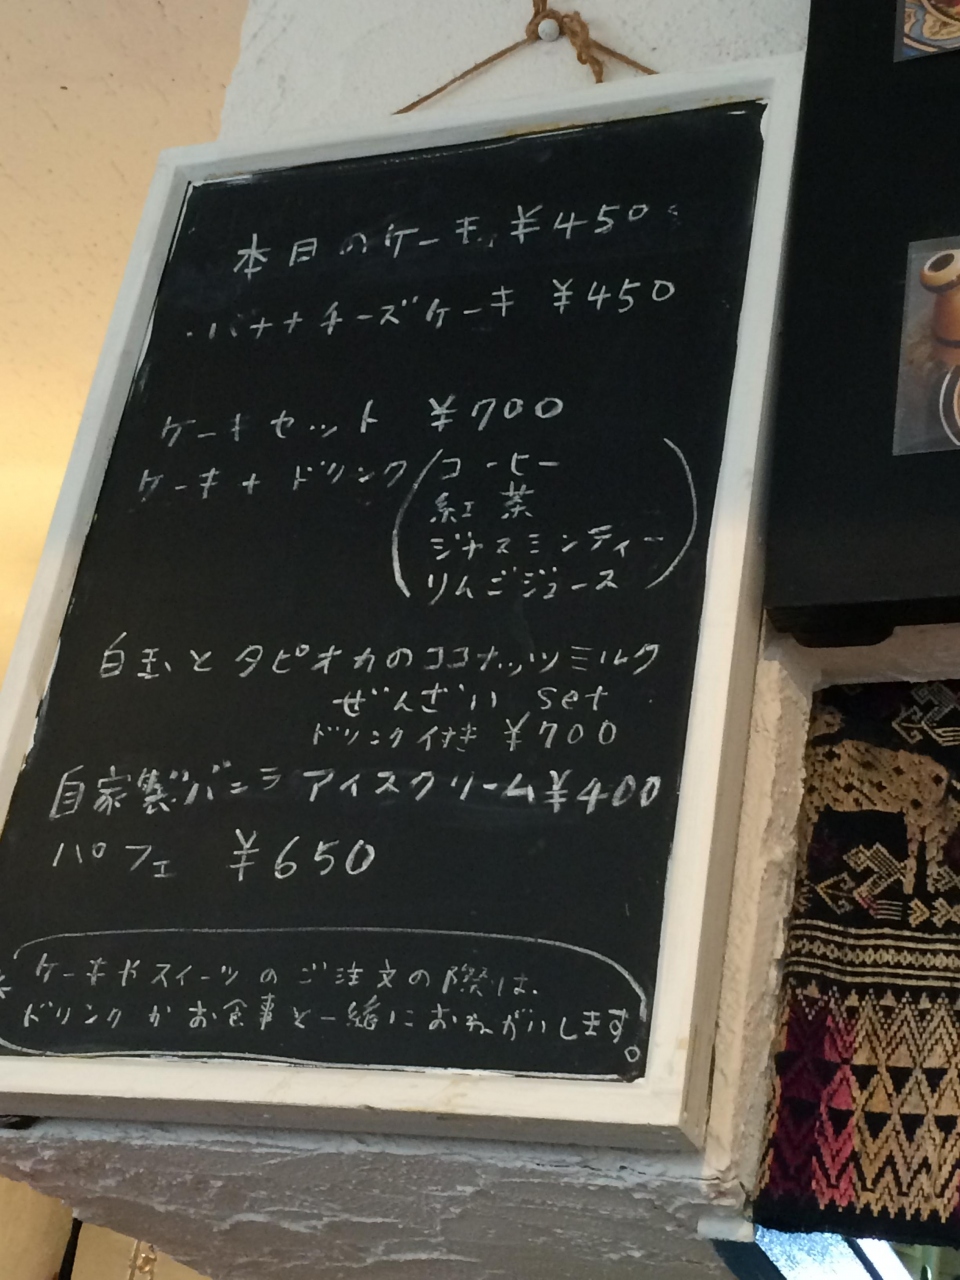 本日のケーキ ¥450
・バナナチーズケーキ ¥450
ケーキセット ¥700
ケーキ+ドリンク(コーヒー
紅茶
ジャスミンティー
りんごジュース)
白玉とタピオカのココナッツミルク
ぜんざい set
ドリンク付き ¥700
自家製バニラアイスクリーム¥400
パフェ ¥650
※ケーキやスイーツのご注文の際は、
ドリンクかお食事と一緒におねがいします。